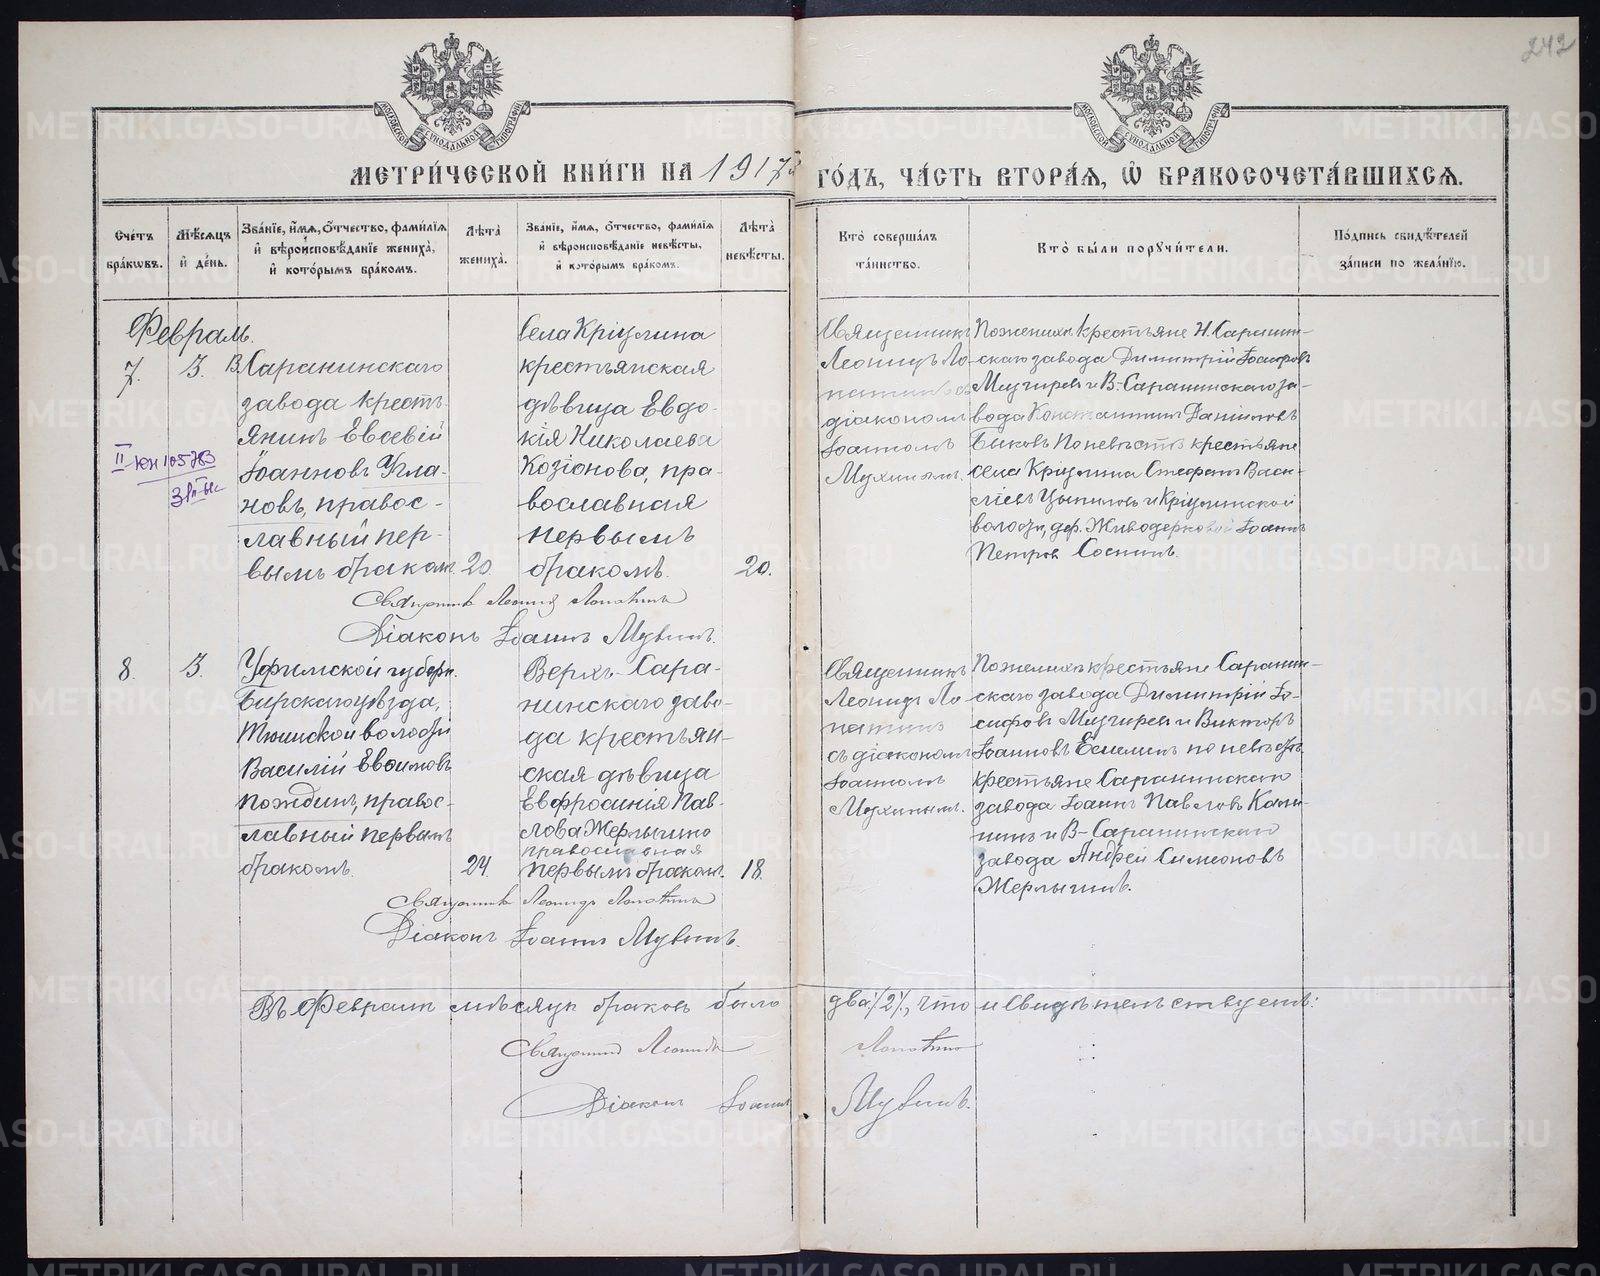 242
МОСКОВСКОЙ СѴНОДАЛЬНОЙ ТИПОГРАФІИ
МОСКОВСКОЙ СѴНОДАЛЬНОЙ ТИПОГРАФІИ
МЕТРИ́ЧЕСКОЙ КНИ́ГИ НА 1917й ГО́ДЪ, ЧА́СТЬ ВТОРА́Я, Ѡ҆ БРАКОСОЧЕТА́ВШИХСЯ.
Сче́тъ бра́кѡвъ.
Мѣ́сяцъ и҆ де́нь.
Зва́нїе, и҆́мя, ѻ҆́тчество, фами́лїя и҆ вѣроисповѣ́данїе жениха̀, и҆ кото́рымъ бра́комъ.
Лѣ́та жениха̀.
Зва́нїе, и҆́мя, ѻ҆́тчество, фами́лїя и҆ вѣроисповѣ́данїе невѣ́сты, и҆ кото́рымъ бра́комъ.
Лѣ́та невѣ́сты.
Кто̀ соверша́лъ та́инство.
Кто̀ бы́ли порꙋчи́тели.
По́дпись свидѣ́телей за́писи по жела́нїю.
Февраль.
7.
3.
В. Саранинскаго
завода кресть-
янинъ Евсевій
Іоанновъ Угла-
новъ, правос-
лавный пер-
вымъ бракомъ
20
Села Кріулина
крестьянская
дѣвица Евдо-
кія Николаева
Козіонова, пра-
вославная
первымъ
бракомъ.
20.
Священникъ
Леонидъ Ло-
патинъ съ
діакономъ
Іоанномъ
Мухинымъ.
По женихѣ крестьяне Н. Саранин-
скаго завода Димитрій Іосифовъ
Мизгиревъ и В-Саранинскаго за-
вода Константинъ Даниловъ
Быковъ По невѣстѣ крестьяне
села Кріулина Стефанъ Васи-
ліевъ Цыпинъ и Кріулинской
волости, дер. Живодерковой Іоаннъ
Петровъ Соснинъ.
II юн 105783
Священникъ Леонидъ Лопатинъ
Діаконъ Іоаннъ Мухинъ.
8.
3.
Уфимской губерн.
Бирскаго уѣзда,
волости
Василій Евѳимовъ
Пождинъ, правос-
лавный первымъ
бракомъ.
24.
Верхъ-Сара-
нинскаго заво-
да крестьян-
ская дѣвица
Евфросинія Пав-
лова Жерлыгино
православная
первымъ бракомъ.
18.
Священникъ
Леонидъ Ло
патинъ
съ діакономъ
Іоанномъ
Мухинымъ.
По женихѣ крестьяне Саранин-
скаго завода Димитрій Іо-
сифовъ Мизгиревъ и Викторъ
Іоанновъ по невѣстѣ
крестьяне Саранинскаго
завода Іоаннъ Павловъ
и В-Саранинскаго
завода Андрей Симеоновъ
Жерлыгинъ.
Священникъ Леонидъ Лопатинъ
Діаконъ Іоаннъ Мухинъ.
Въ Февралѣ мѣсяцѣ браковъ было два /2/, что и свидѣтельствуемъ:
Священникъ Леонидъ Лопатинъ
Діаконъ Іоаннъ Мухинъ.
METRIKI.GASO-URAL.RU